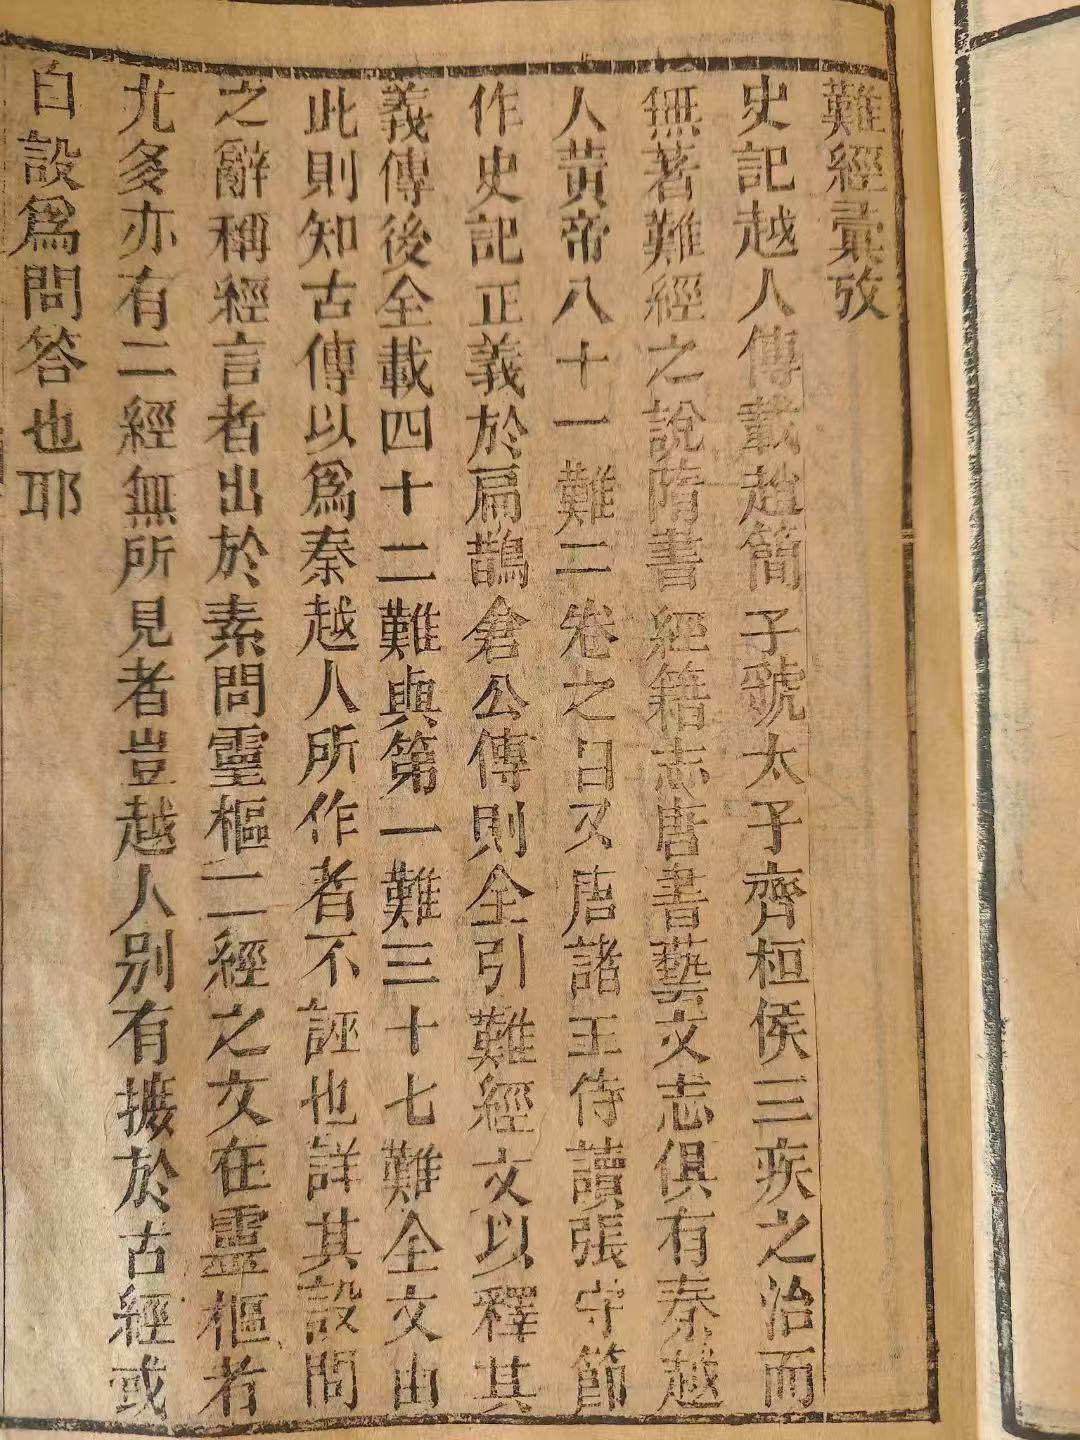 難經彙攷
史記越人傳載趙簡子虢太子齊桓侯三疾之治而
無著難經之說隋書經籍志唐書藝文志俱有秦越
人黃帝八十一難二卷之目又唐諸王侍讀張守節
作史記正義於扁鵲倉公傳則全引難經文以釋其
義傳後全載四十二難與第一難三十七難全文由
此則知古傳以爲秦越人所作者不誣也詳其設問
之辭稱經言者出於素問靈樞二經之文在靈樞者
尤多亦有二經無所見者豈越人別有摭於古經或
自設爲問答也耶